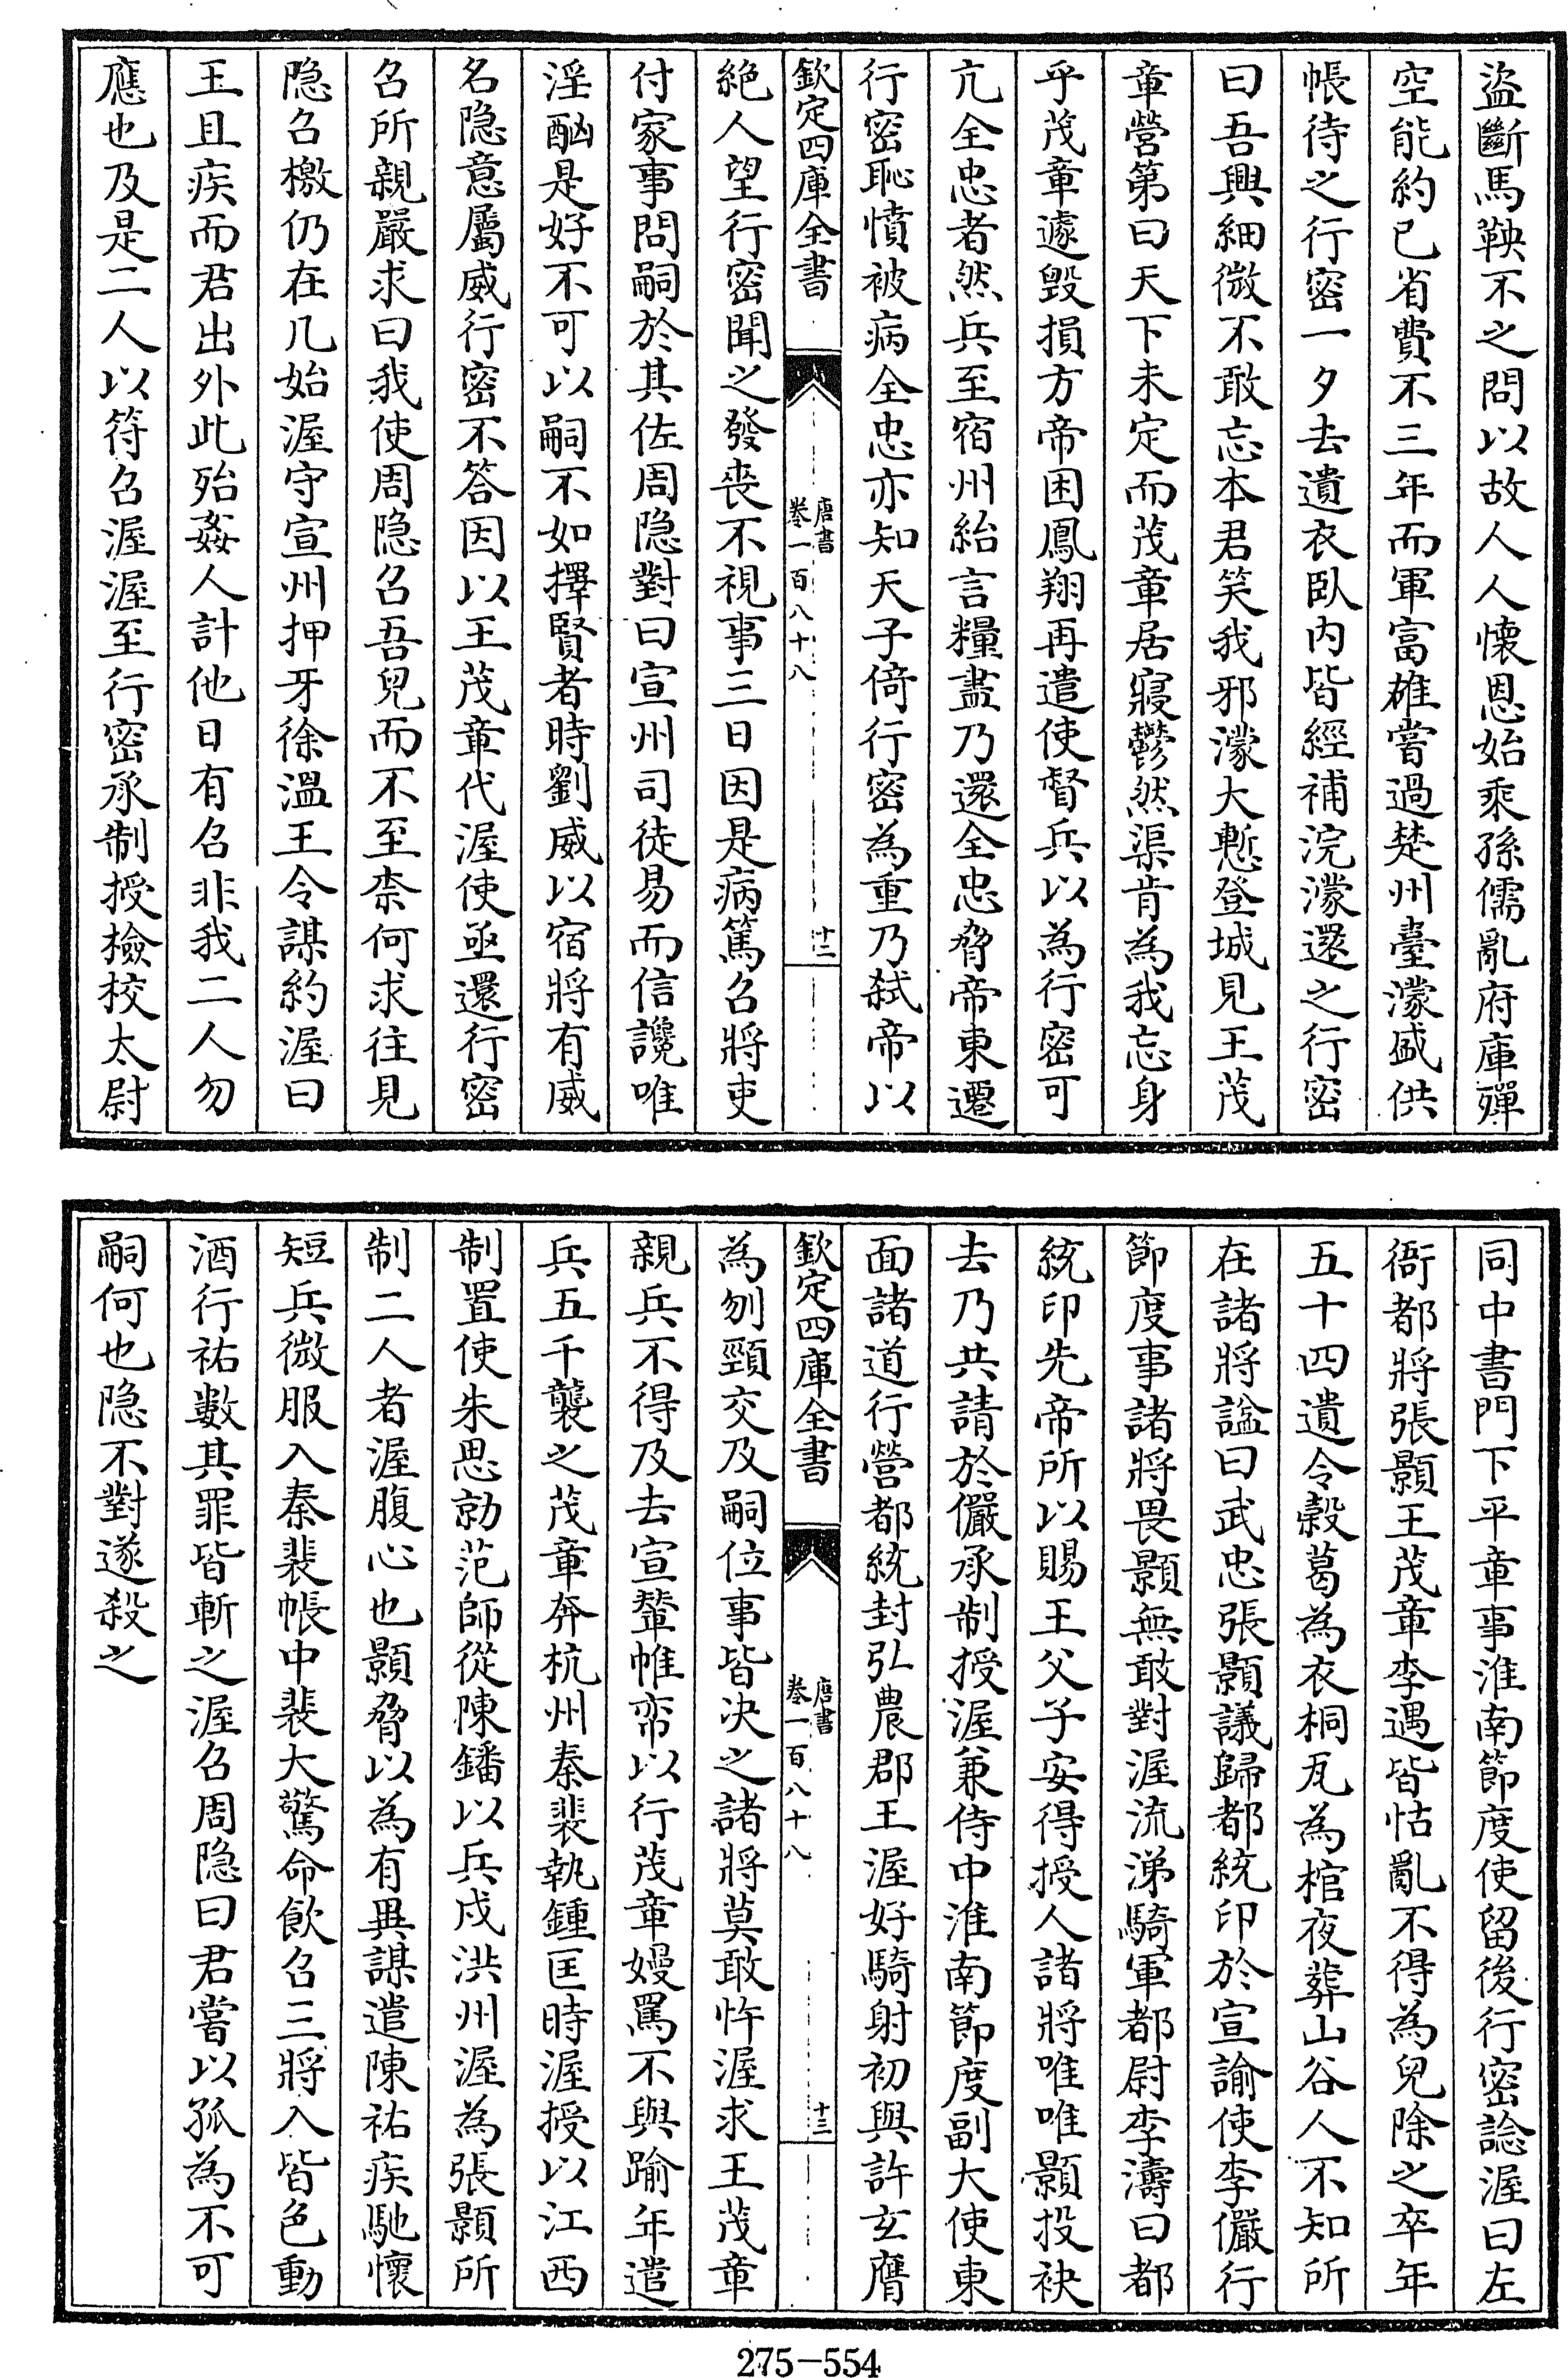 盜斷馬鞅不之問以故人人懷恩始乘孫儒亂府庫殫
空能約已省費不三年而軍富雄嘗過楚州臺濛盛供
帳待之行密一夕去遺衣臥內皆經補浣濛還之行密
曰吾興細微不敢忘本君笑我邪濛大慙登城見王茂
章營第曰天下未定而茂章居寢鬱然渠肯為我忘身
乎茂章遽毀損方帝困鳳翔再遣使督兵以為行密可
亢全忠者然兵至宿州紿言糧盡乃還全忠脅帝東遷
行密恥憤被病全忠亦知天子倚行密為重乃弒帝以
欽定四庫全書
唐書
卷一百八十八
十二
絕人望行密聞之發喪不視事三日因是病篤召將吏
付家事問嗣於其佐周隱對曰宣州司徒易而信讒唯
淫酗是好不可以嗣不如擇賢者時劉威以宿將有威
名隱意屬威行密不答因以王茂章代渥使亟還行密
召所親嚴求曰我使周隱召吾兒而不至柰何求往見
隱召檄仍在几始渥守宣州押牙徐溫王令謀約渥曰
王且疾而君出外此殆姦人計他日有召非我二人勿
應也及是二人以符召渥渥至行密承制授檢校太尉
同中書門下平章事淮南節度使留後行密諗渥曰左
衙都將張顥王茂章李遇皆怙亂不得為兒除之卒年
五十四遺令穀葛為衣桐瓦為棺夜葬山谷人不知所
在諸將謚曰武忠張顥議歸都統印於宣諭使李儼行
節度事諸將畏顥無敢對渥流涕騎軍都尉李濤曰都
統印先帝所以賜王父子安得授人諸將唯唯顥投袂
去乃共請於儼承制授渥兼侍中淮南節度副大使東
面諸道行營都統封弘農郡王渥好騎射初與許玄膺
欽定四庫全書
唐書
卷一百八十八
十三
為刎頸交及嗣位事皆決之諸將莫敢忤渥求王茂章
親兵不得及去宣輦帷帟以行茂章嫚罵不與踰年遣
兵五千襲之茂章奔杭州秦裴執鍾匡時渥授以江西
制置使朱思勍范師從陳鐇以兵戍洪州渥為張顥所
制二人者渥腹心也顥脅以為有異謀遣陳祐疾馳懷
短兵微服入秦裴帳中裴大驚命飲召三將入皆色動
酒行祐數其罪皆斬之渥召周隱曰君嘗以孤為不可
嗣何也隱不對遂殺之
275-554